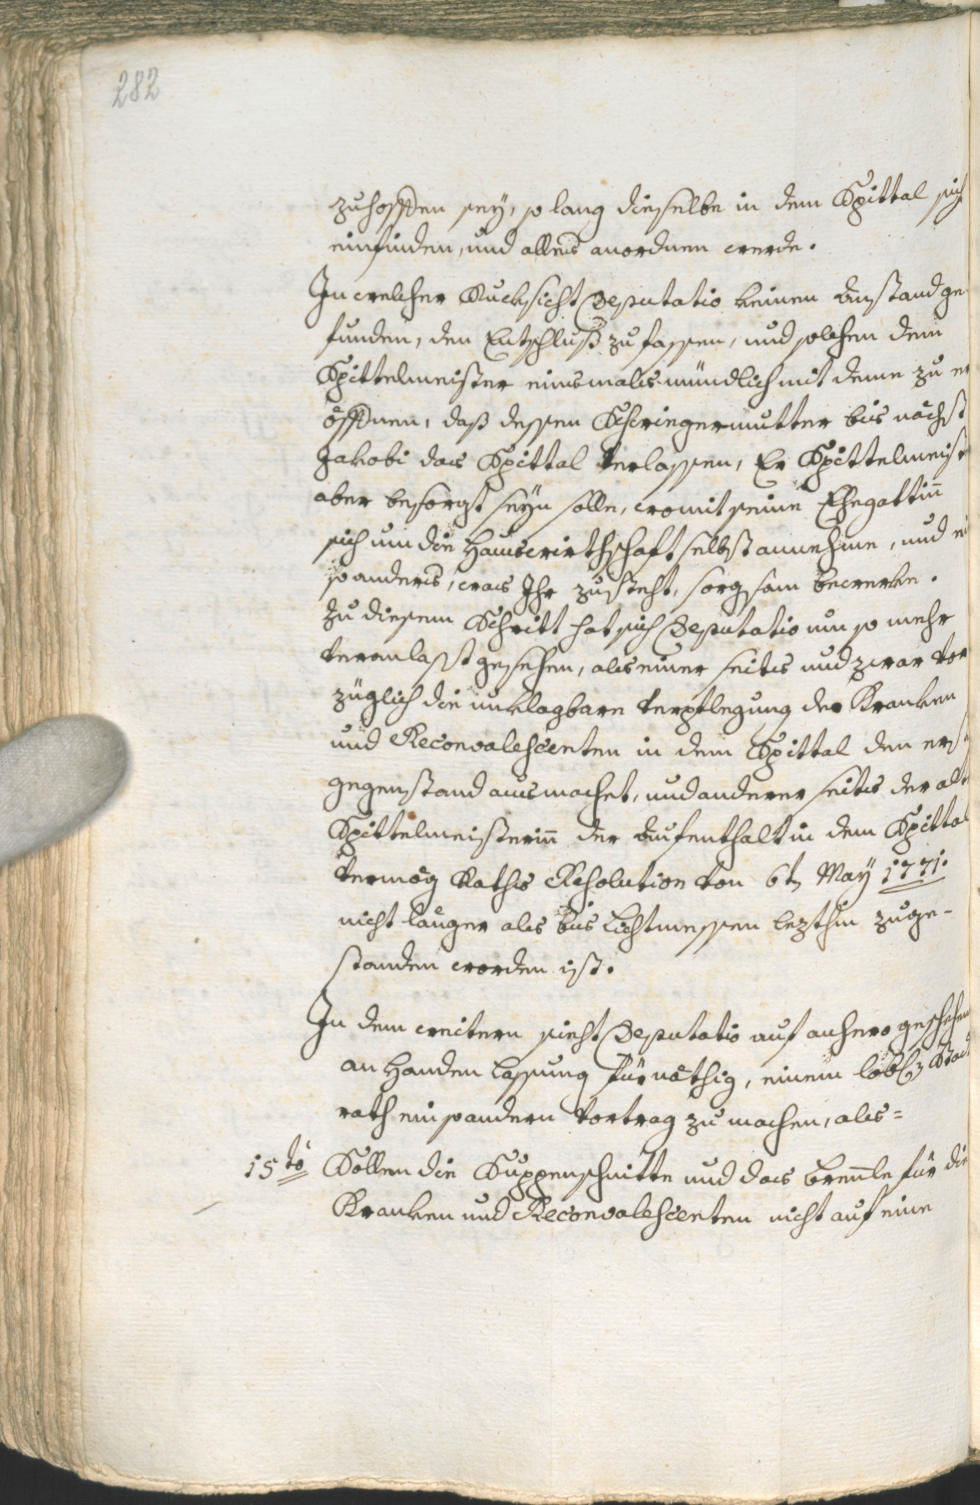 282
zuhoffen seÿ, so lang dieselbe in dem Spittal sich
einfinden, und alles anordnen werde.
In welcher Rucksicht Deputatio keinen Anstand ge
funden, den Entschluß zu fassen, und solchen dem
Spittelmeister einsmals mündlich mit deme zu er
öffnen, daß dessen Schwingermutter bis nächst
Jakobi das Spittal verlassen, Er Spittelmeist
aber besorgt seÿn solle, womit seine Ehegattiñ
sich um die Hauswirthschaft selbst annehme, und
so anders, was Ihr zusteht, sorgsam bewerke.
Zu diesem Schritt hat sich Deputatio um so mehr
veranlasst gesehen, als einer seits und zwar vor
züglich die unklagbare Verpflegung der Kranken
und Reconvalescenten in dem Spittal den erst
gegenstand ausmachet, und anderer seits der alt
Spittelmeisteriñ der Aufenthalt in dem Spittal
vermög Raths Resolution von 6t May 1771.
nicht länger als bis Lichtmessen lezthin zuge-
standen worden ist.
In dem weitern sieht Deputatio auf anhero geschehen
an Handen Lassung für nöthig, einem löbl Stadt
rath ein so andern Vortrag zu machen, als=
15to Sollen die Suppenschnitte und das Breñle für die
Kranken und Reconvalescenten nicht auf eine